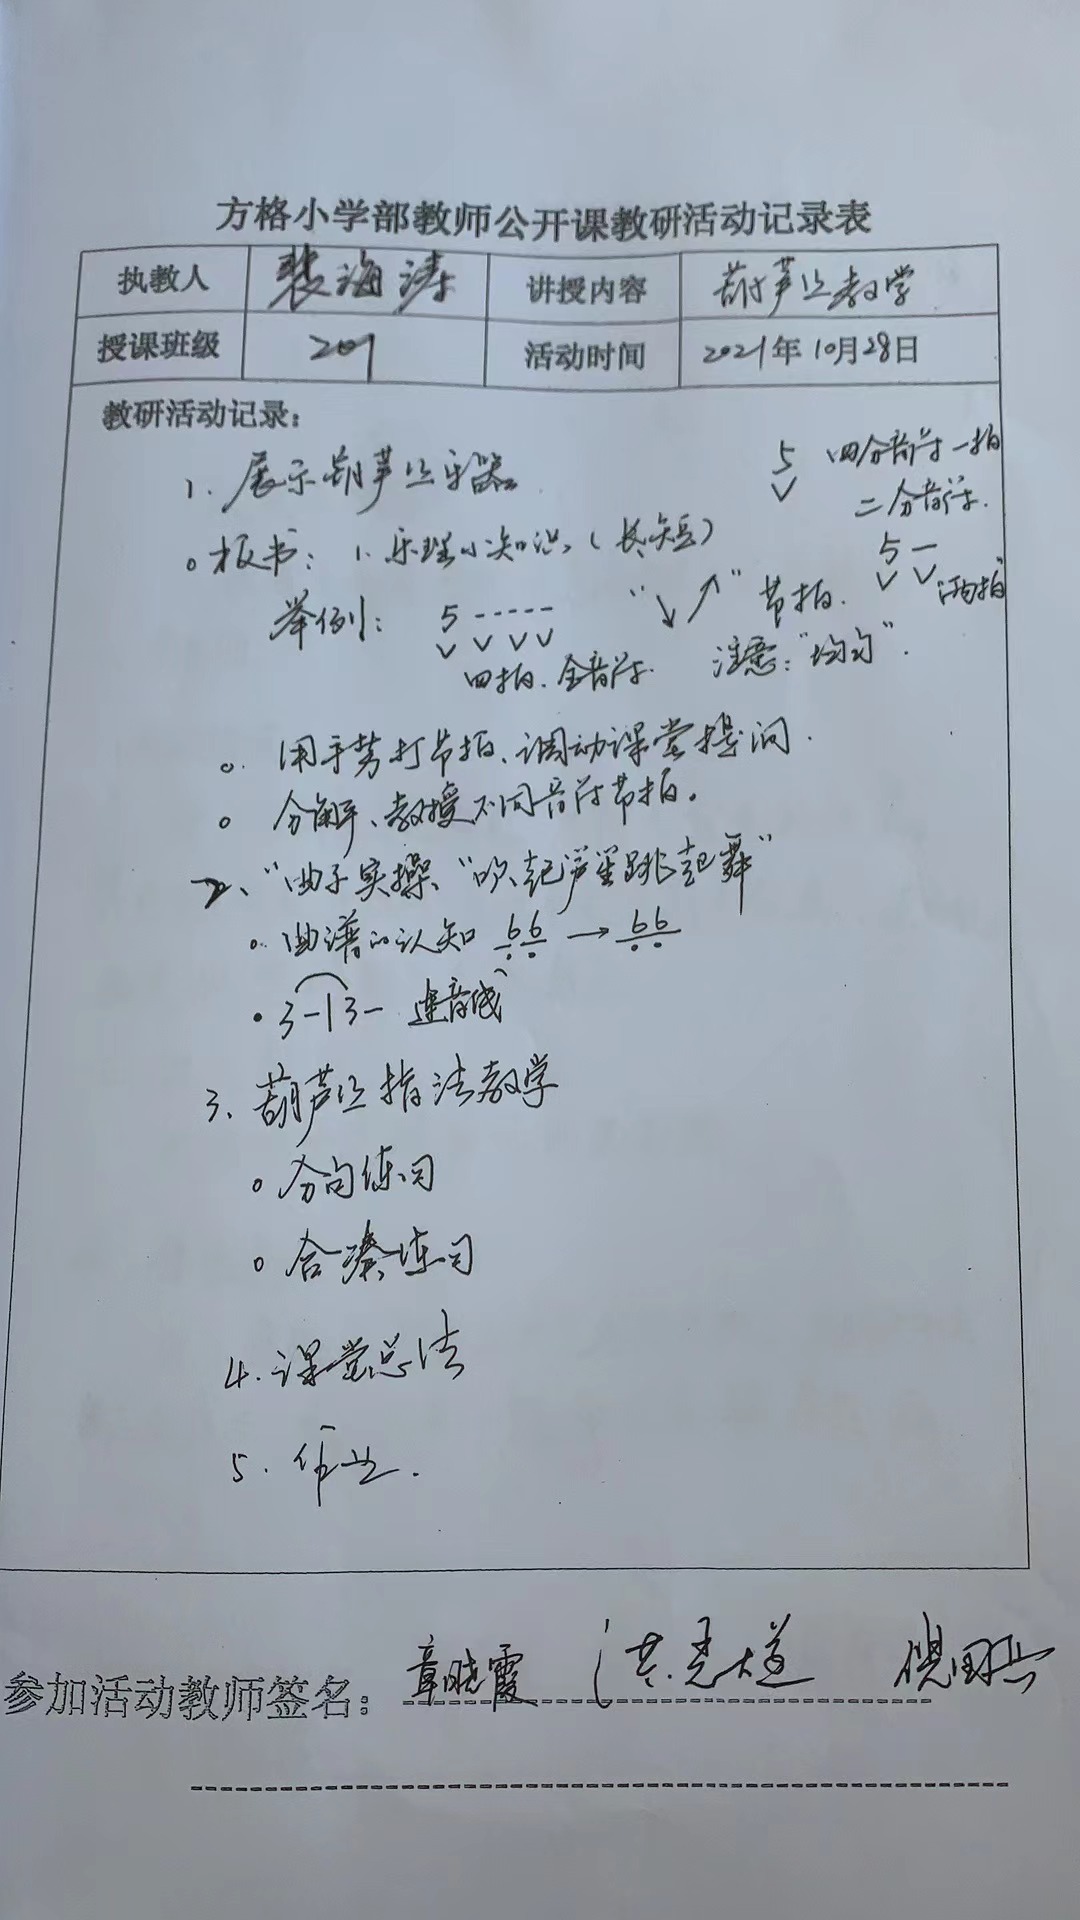 方格小学部教师公开课教研活动记录表
执教人 裴海涛 讲授内容 葫芦丝教学
授课班级 201 活动时间 2021年10月28日
教研活动记录：
1、展示葫芦丝乐器
5 四分音符一拍
二分音符.
。板书：1、乐理小知识（长、短）
5 —
"两拍"
举例： 5 ----- "↘↗" 节拍.
四拍. 全音符. 注意："均匀".
。用手势打节拍、调动课堂提问.
。分解、教授不同音符节拍。
2、"曲子实操、"吹起芦笙跳起舞"
。曲谱的认知 66 → 66
• 3-|3- 连音线
3、葫芦丝指法教学
。分句练习
。合奏练习
4. 课堂总结
5. 作业.
参加活动教师签名： 章晓霞